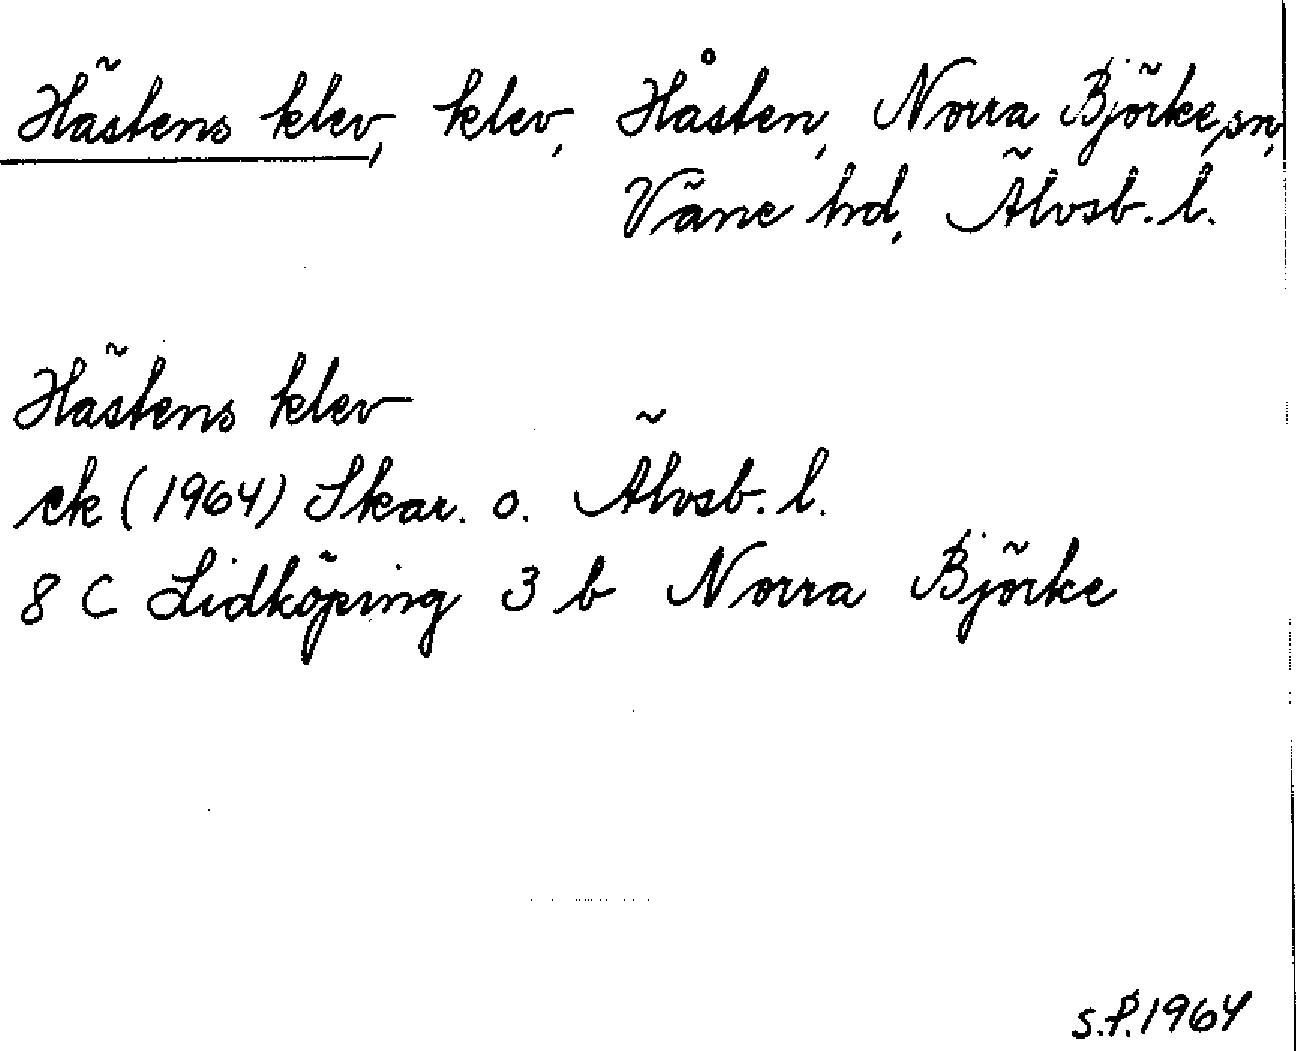 Hästens klev, klev, Håsten, Norra Björke sn,
Väne hd, Älvsb. l.
Hästens klev
ek (1964) Skar. o. Älvsb. l.
8 C Lidköping 3 b Norra Björke
S.P. 1964